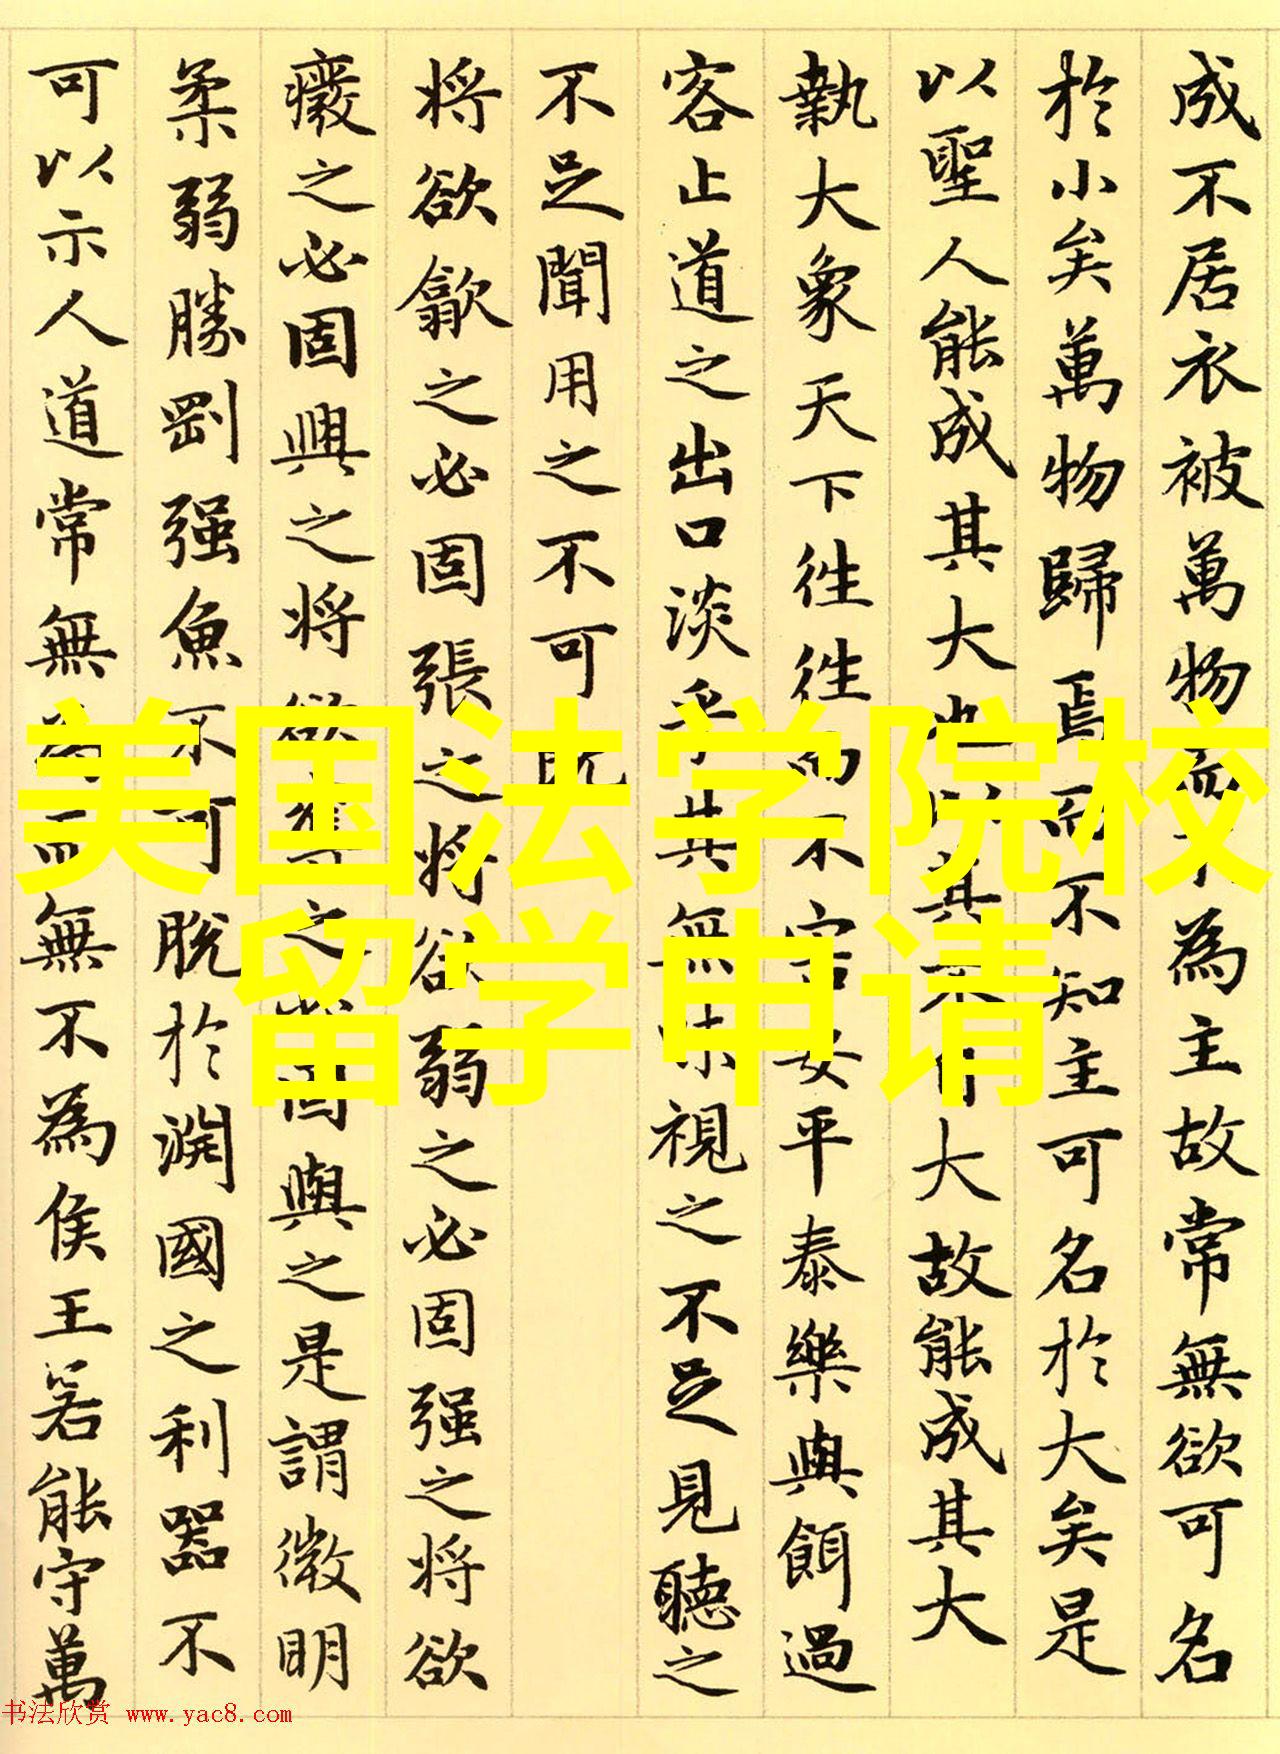 成不居衣被萬物而不為主故常無欲可名
於小矣萬物歸焉而不知主可名於大矣是
以聖人能成其大也以其不自大故能成其大
執大象天下往往而不害安平泰樂與餌過
客止道之出口淡乎其無味視之不足見聽之
不足聞用之不可既
将欲歙之必固張之将欲弱之必固强之将欲
癈之必固興之将欲奪之必固與之是謂微明
柔弱勝剛强魚不可脫於淵國之利器不
可以示人道常無為而無不為侯王若能守萬
美国法学院校
留学申请
书法欣赏 www.yac8.com